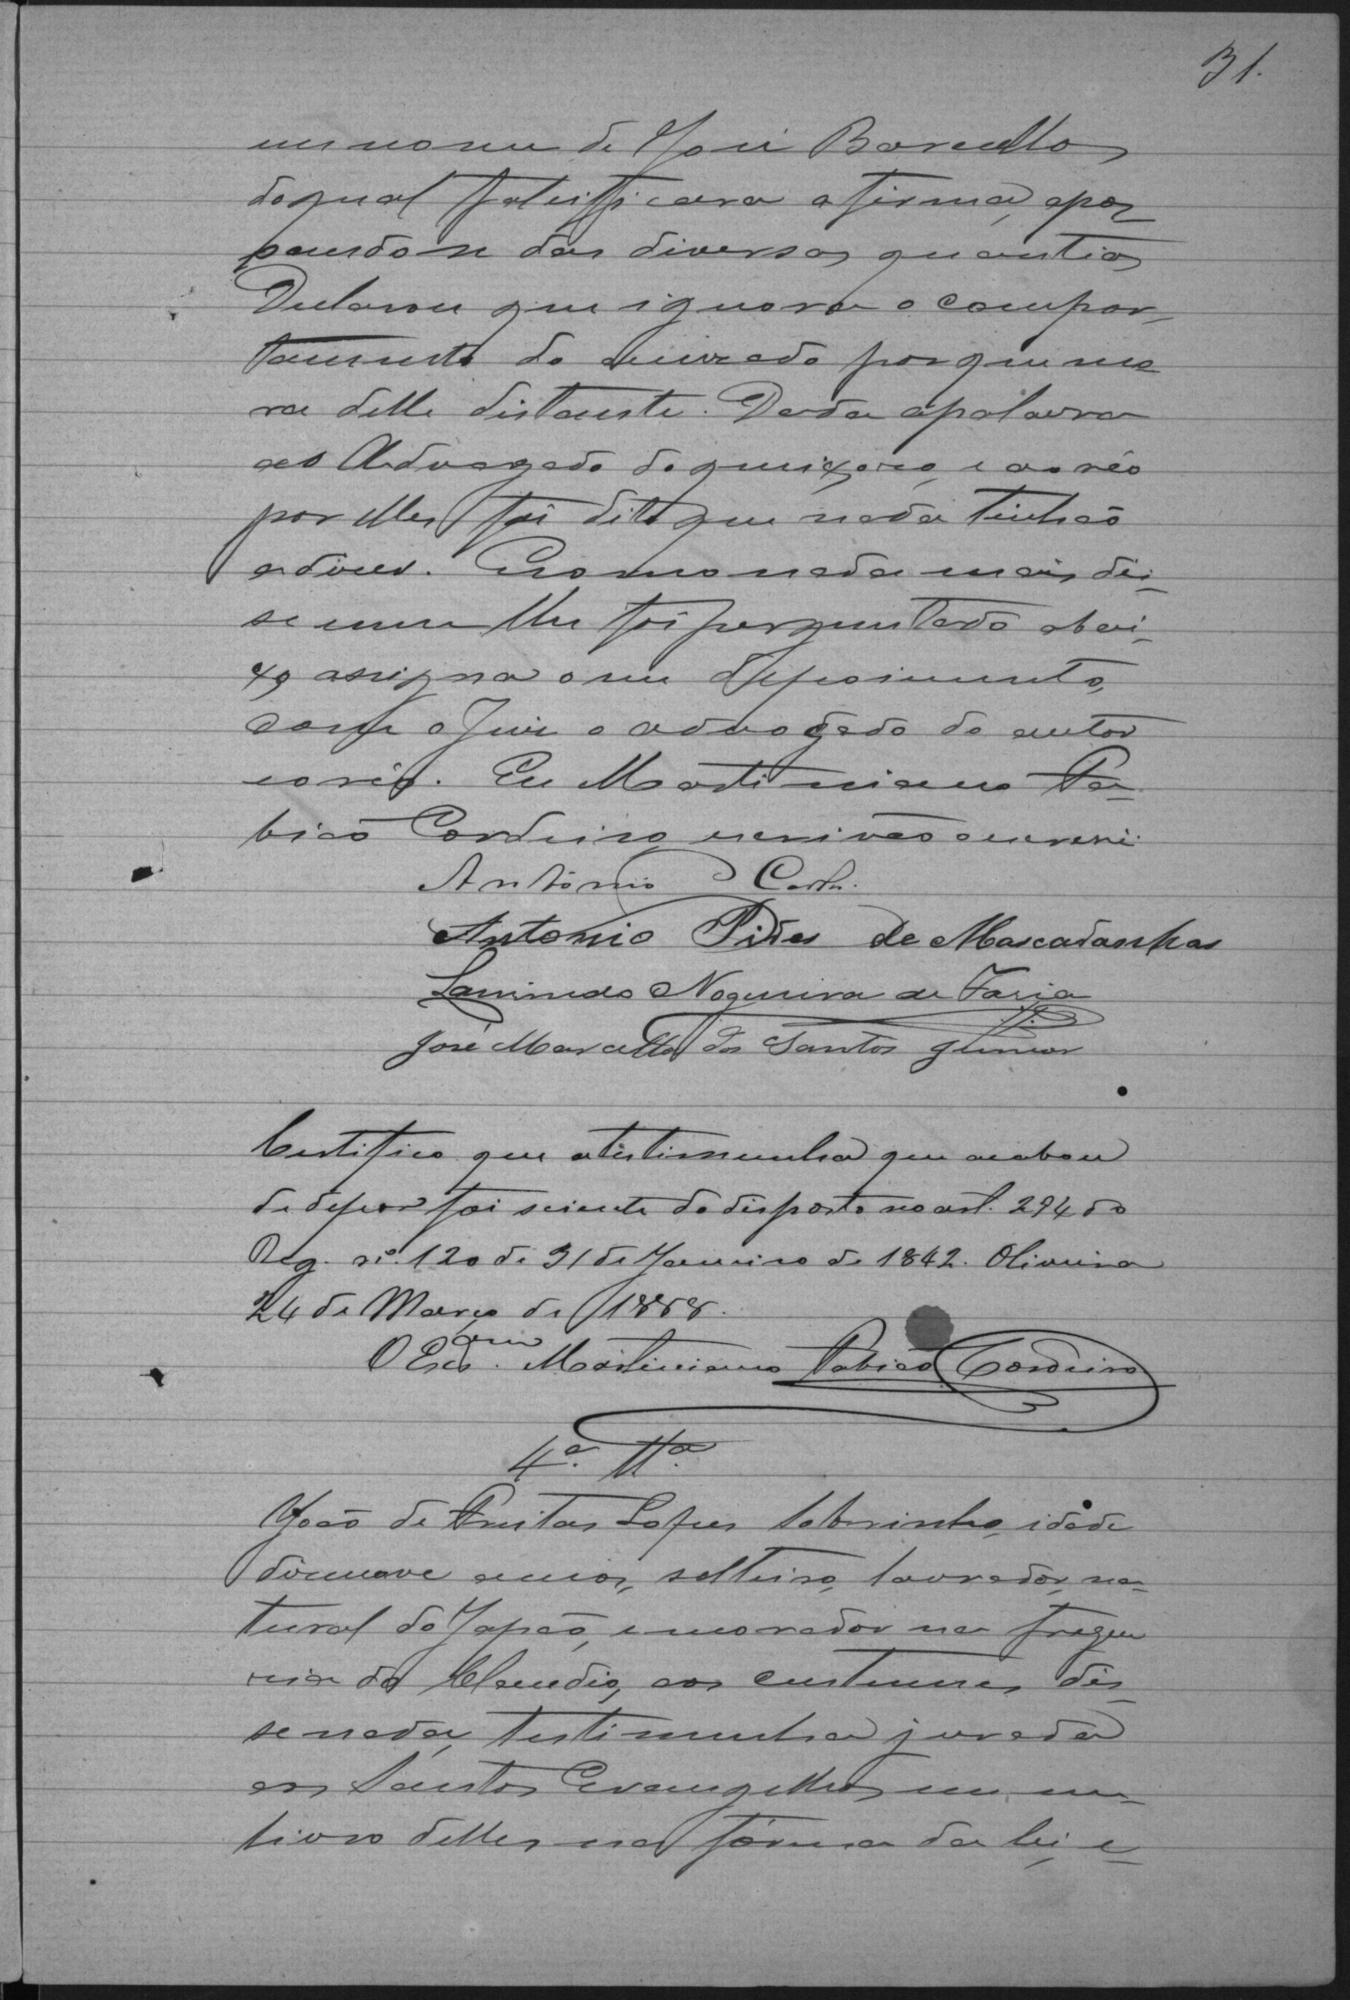 31.
em nome de José Barcellos
do qual falsificara a firma, apos
sando se das diversas quantias
Declarou que ignora o compor-
tamento do accusado porque mo
ra delle distante. Dada a palavra
ao Advogado do queixoso, e ao réo
por elles foi dito que nada tinhão
a dizer. E como nada mais dis-
se nem lhe foi perguntado abai-
xo assigna o seu depoimento,
com o Juiz o advogado do autor
e o réo. Eu Martiniano Fa-
bião Cordeiro, escrivão o escrevi.
Antônio
Antonio Pires de Mascadanhas
Nogueira de Faria
José Marcello dos Santos Junior
Certifico que a testimunha que acabou
de depor foi sciente do disposto no art. 294 do
Reg. nº. 120 de 31 de Janeiro de 1842. Oliveira
24 de Março de 1888.
O Escram. Martiniano Fabião Cordeiro
4ª. Tª.
João de Freitas Lopes Sobrinho, idade
dienove annos, solteiro, lavrador, na-
tural do Japão, e morador na fregue
sia do Claudio, aos custumes dis-
se nada, testimunha jurada
aos Santos Evangelhos em um
livro delles na fórma da lei, e